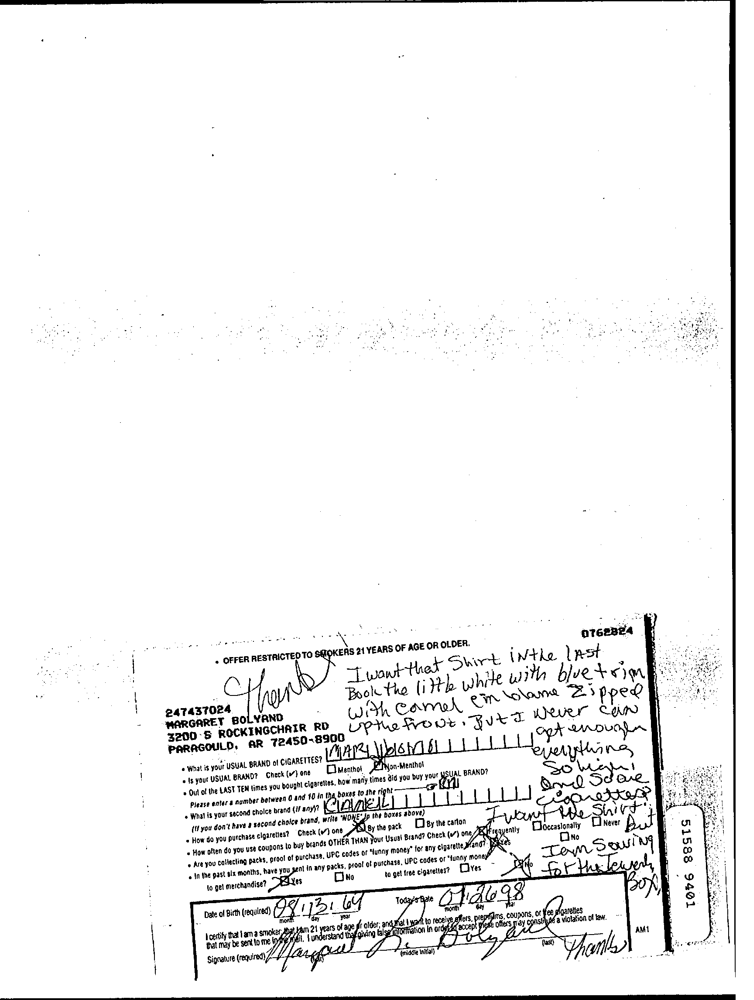 0762824
• OFFER RESTRICTED TO SMOKERS 21 YEARS OF AGE OR OLDER.
I want that Shirt in the last
Book the little white with blue trim
with Camel emblame Zipped
up the front. But I Never can
get enough
everything
So high!
And Save
Cigarettes
I want the Shirt!
But
I am Saving
for the
Box,
Thanks
247437024
MARGARET BOLYARD
3200 S ROCKINGCHAIR RD
PARAGOULD, AR 72450-8900
• What is your USUAL BRAND of CIGARETTES?
• Is your USUAL BRAND? Check (✓) one ☐ Menthol ☒ Non-Menthol
• Out of the LAST TEN times you bought cigarettes, how many times did you buy your USUAL BRAND?
Please enter a number between 0 and 10 in the boxes to the right
• What is your second choice brand (if any)? CAMEL
(If you don't have a second choice brand, write "NONE" in the boxes above)
• How do you purchase cigarettes? Check (✓) one ☒ By the pack ☐ By the carton
• How often do you use coupons to buy brands OTHER THAN your Usual Brand? Check (✓) one ☒ Frequently ☐ Occasionally ☐ Never
• Are you collecting packs, proof of purchase, UPC codes or "funny money" for any cigarette brand? ☒ Yes ☐ No
• In the past six months, have you sent in any packs, proof of purchase, UPC codes or "funny money"
to get merchandise? ☒ Yes ☐ No to get free cigarettes? ☐ Yes ☒ No
Date of Birth (required) 08 13 64 Today's Date 01 26 98
month day year month day year
I certify that I am a smoker, that I am 21 years of age or older, and that I want to receive offers, premiums, coupons, or free cigarettes
that may be sent to me in the mail. I understand that giving false information in order to accept these offers may constitute a violation of law.
Signature (required) Margaret Bolyard
(middle initial) (last)
Thanks
AM1
51588 9401